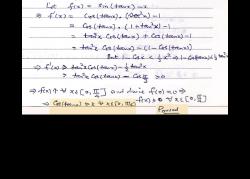 Let f(x) = sin(tanx) - x
⇒ f'(x) = Cos(tanx). (Sec²x) - 1
= Cos(tanx). (1+tan²x) - 1
= tan²x Cos(tanx) + Cos(tanx) - 1
= tan²x Cos(tanx) - (1 - Cos(tanx))
But 1 - Cos x < ½ x² ⇒ 1 - Cos(tanx) < ½ tan²x
⇒ f'(x) > tan²x Cos(tanx) - ½ tan²x
⇒ f(x) ↑ ∀ x ∈ [0, π/4] and since f(0) = 0 ⇒
f(x) ≥ 0 ∀ x ∈ [0, π/4]
Proved